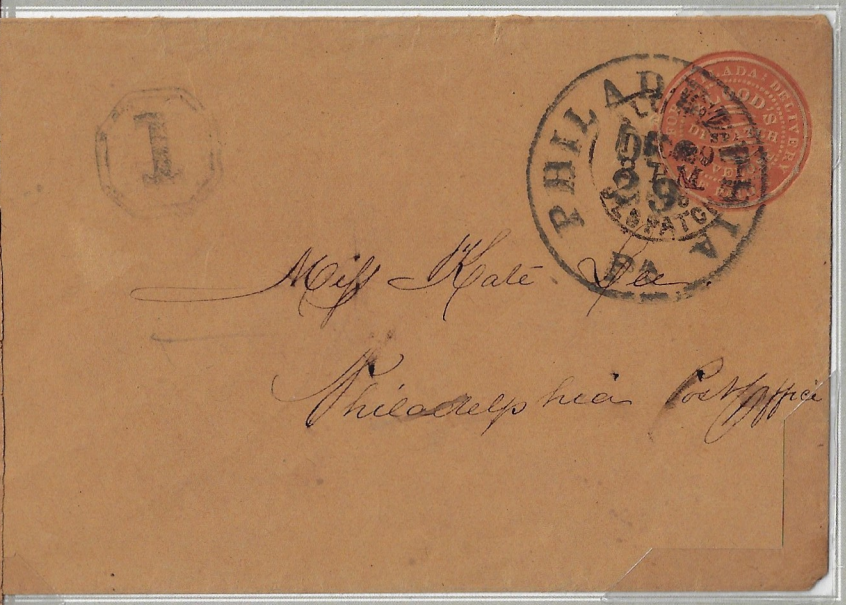 1
PHILADELPHIA
DEC
29
Pa
DESPATCH
BLOOD'S
DELIVERY
Miss Kate Lee
Philadelphia Post Office